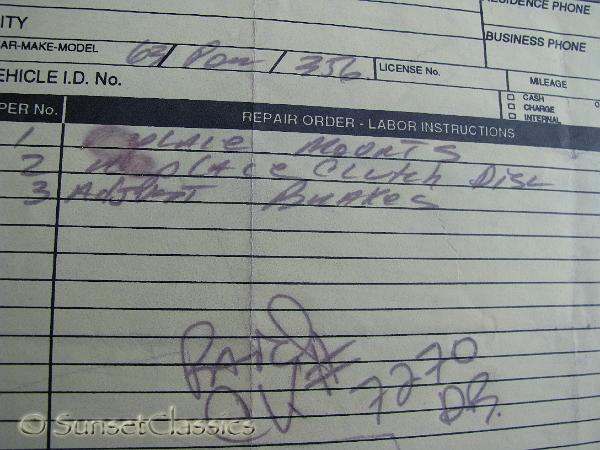 RESIDENCE PHONE
CITY
BUSINESS PHONE
YEAR-MAKE-MODEL 63 / Por / 356 LICENSE No. MILEAGE
VEHICLE I.D. No.
CASH
CHARGE
INTERNAL
OPER No. REPAIR ORDER - LABOR INSTRUCTIONS
1 Replace MOUNTS
2 Replace Clutch Disc
3 Adjust Brakes
PAID
CK# 7270
DR.
© SunsetClassics